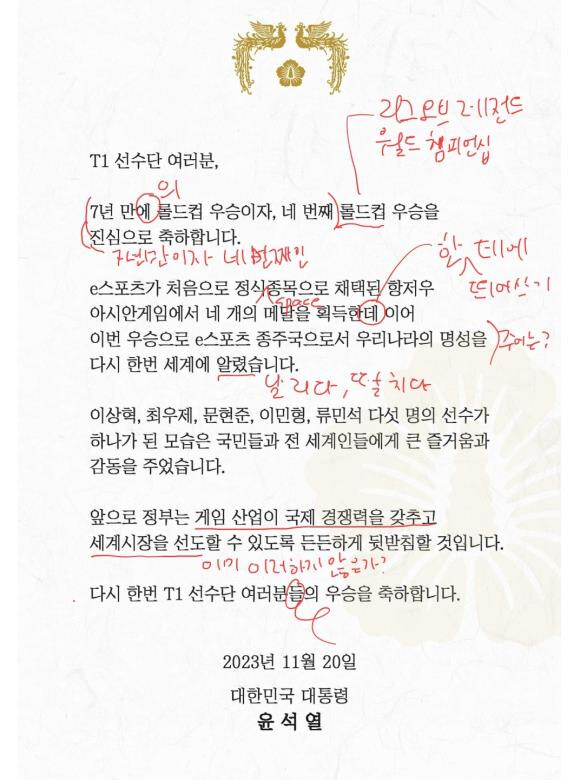 리그오브 레전드
월드 챔피언십
T1 선수단 여러분,
의
7년 만에 롤드컵 우승이자, 네 번째 롤드컵 우승을
진심으로 축하합니다.
7년만이자 네번째인
할 터에
띄어쓰기
e스포츠가 처음으로 정식종목으로 채택된 항저우
space
아시안게임에서 네 개의 메달을 획득한데 이어
이번 우승으로 e스포츠 종주국으로서 우리나라의 명성을
주어는?
다시 한번 세계에 알렸습니다.
날리다, 떨치다
이상혁, 최우제, 문현준, 이민형, 류민석 다섯 명의 선수가
하나가 된 모습은 국민들과 전 세계인들에게 큰 즐거움과
감동을 주었습니다.
앞으로 정부는 게임 산업이 국제 경쟁력을 갖추고
세계시장을 선도할 수 있도록 든든하게 뒷받침할 것입니다.
이미 이러하지 않은가?
다시 한번 T1 선수단 여러분들의 우승을 축하합니다.
2023년 11월 20일
대한민국 대통령
윤석열